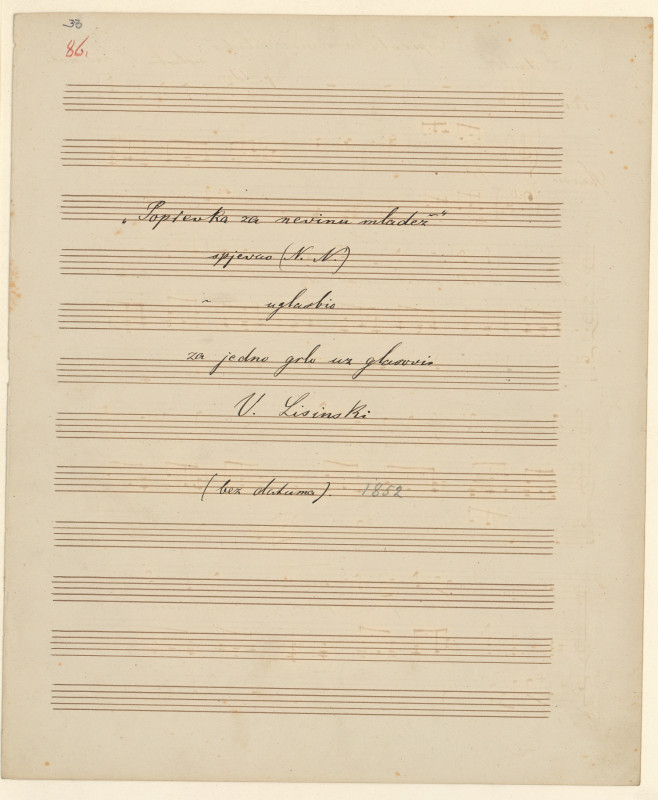 33
86.
„Popievka za nevinu mladež“
spjevao (N. N.)
uglasbio
za jedno grlo uz glasovir
V. Lisinski
(bez datuma). 1852